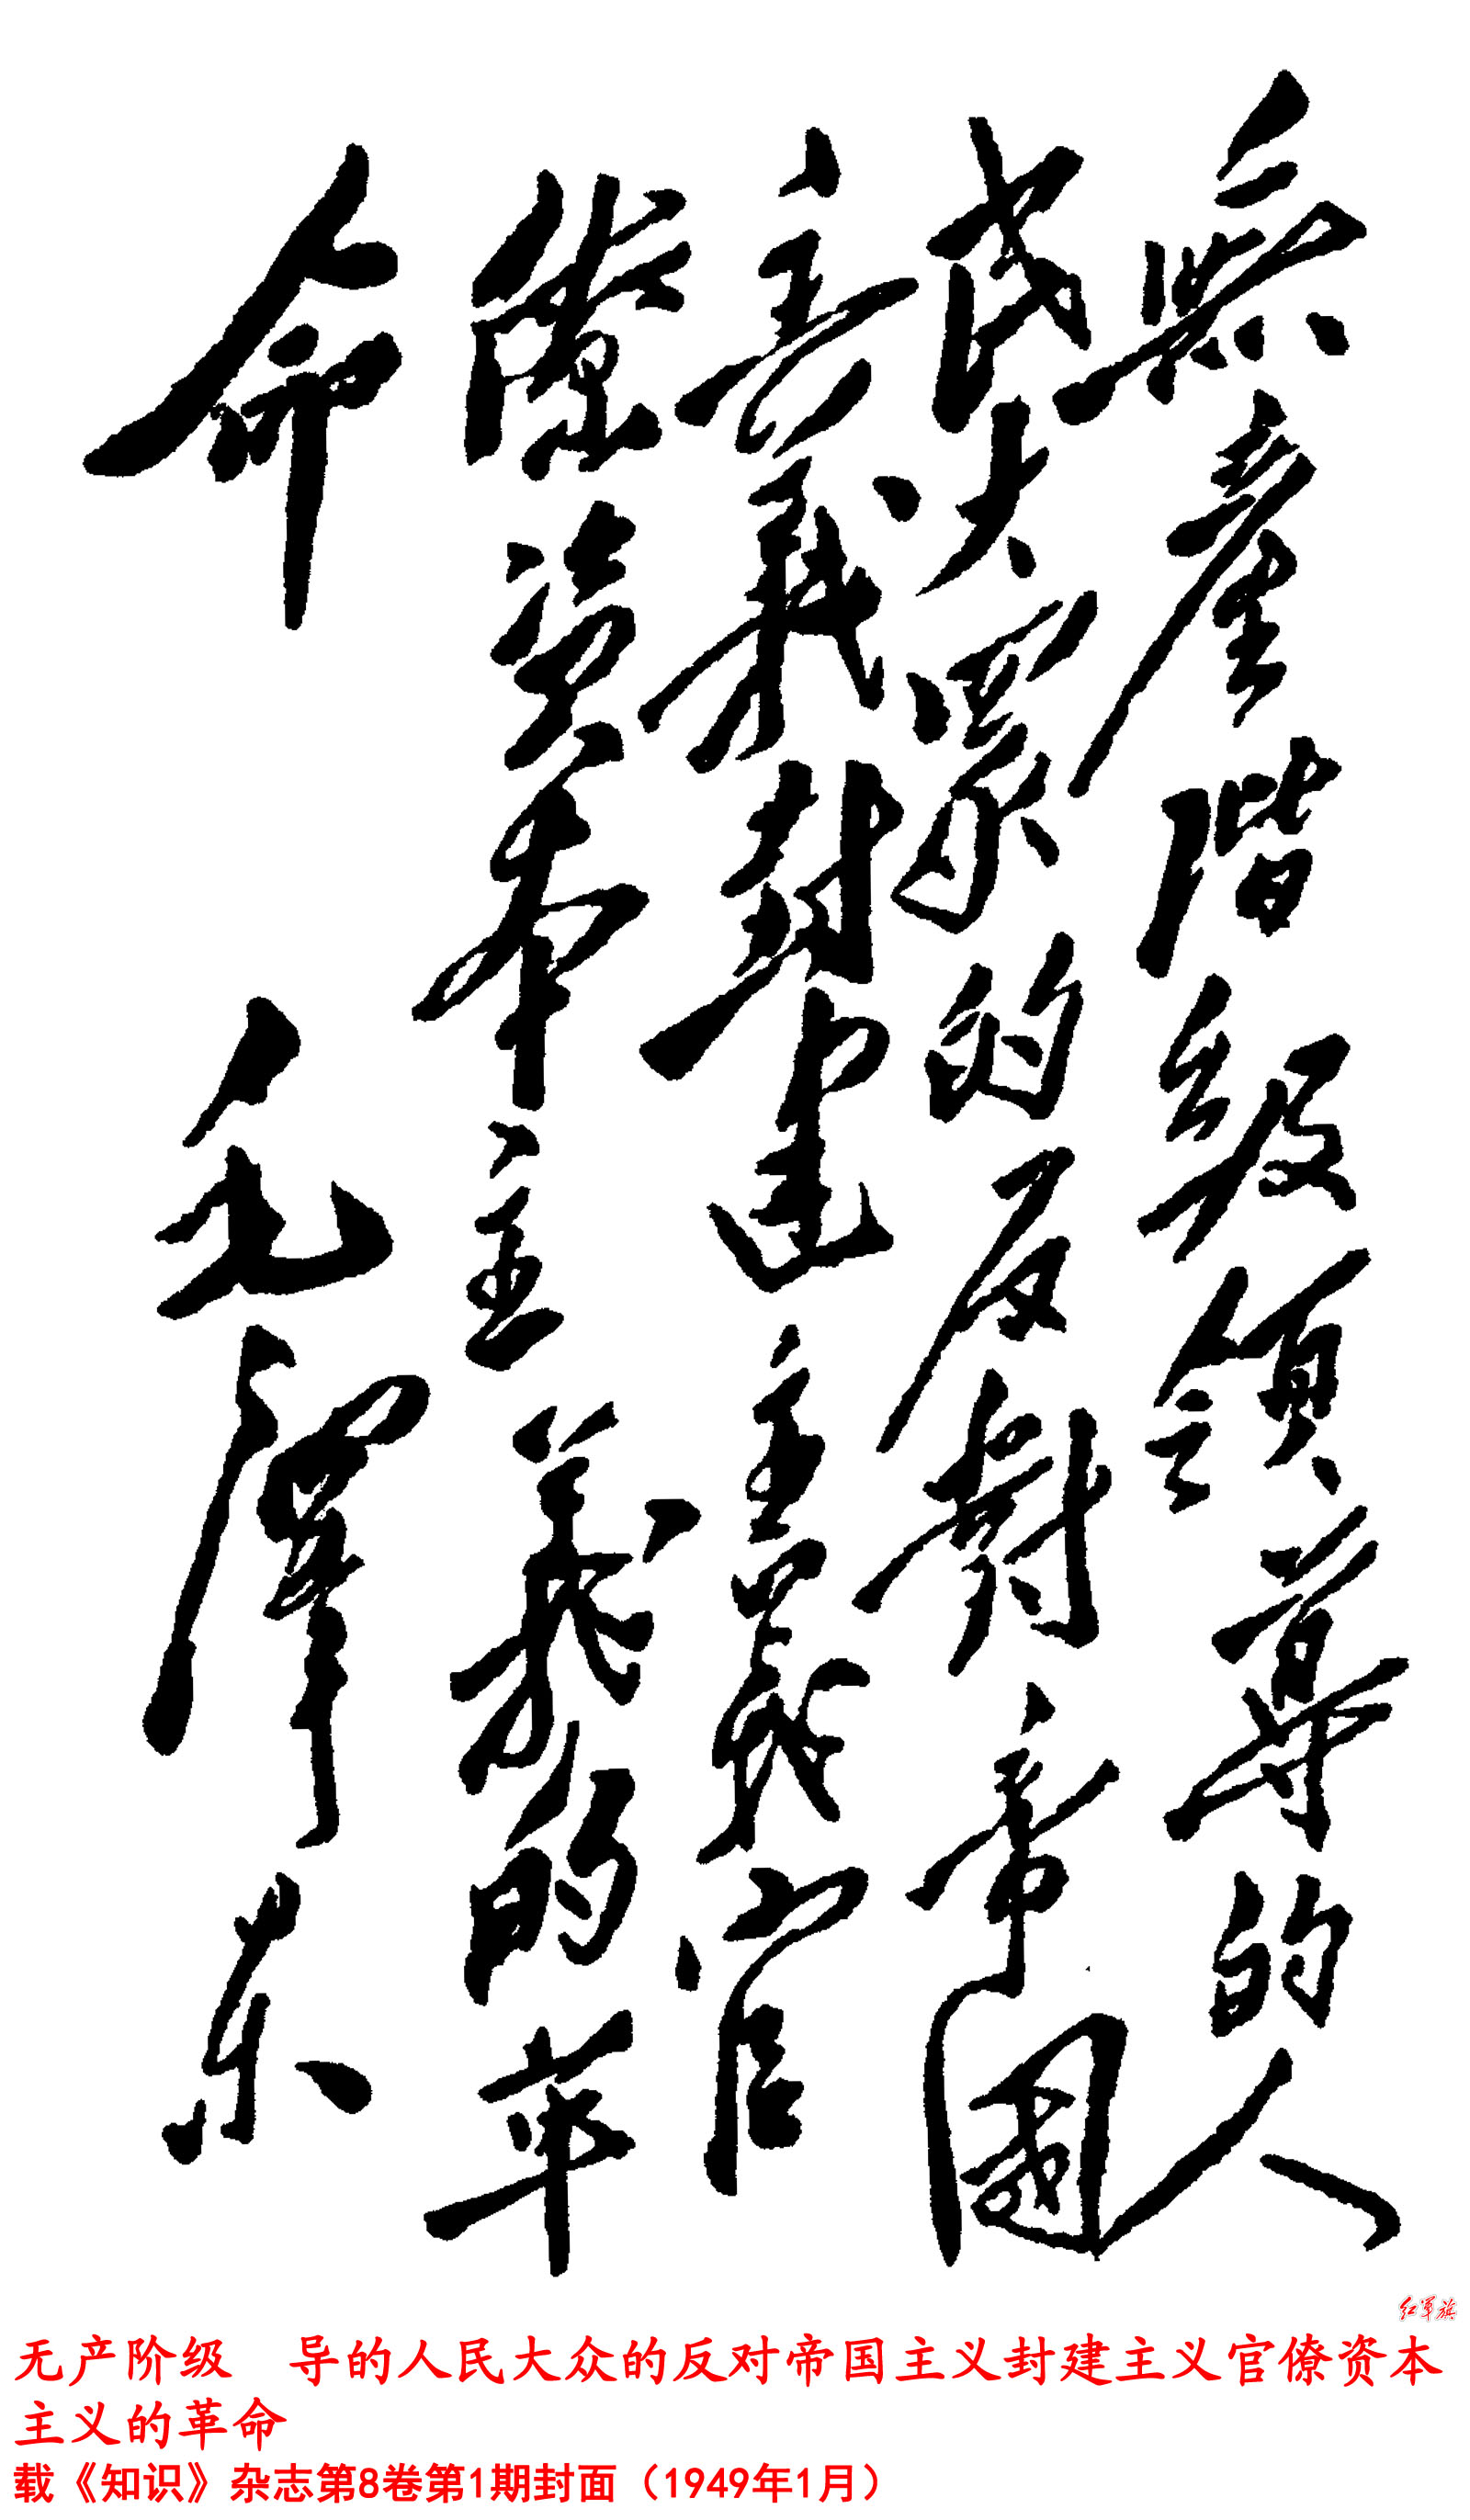 無產階級領導的人
民大眾的反對帝國
主義封建主義官
僚資本主義的革
命
毛澤东
红军旗
无产阶级 导的人民大众的反对帝国主义封建主义官僚资本
主义的革命
载《知识》杂志第8卷第1期封面（1949年1月）